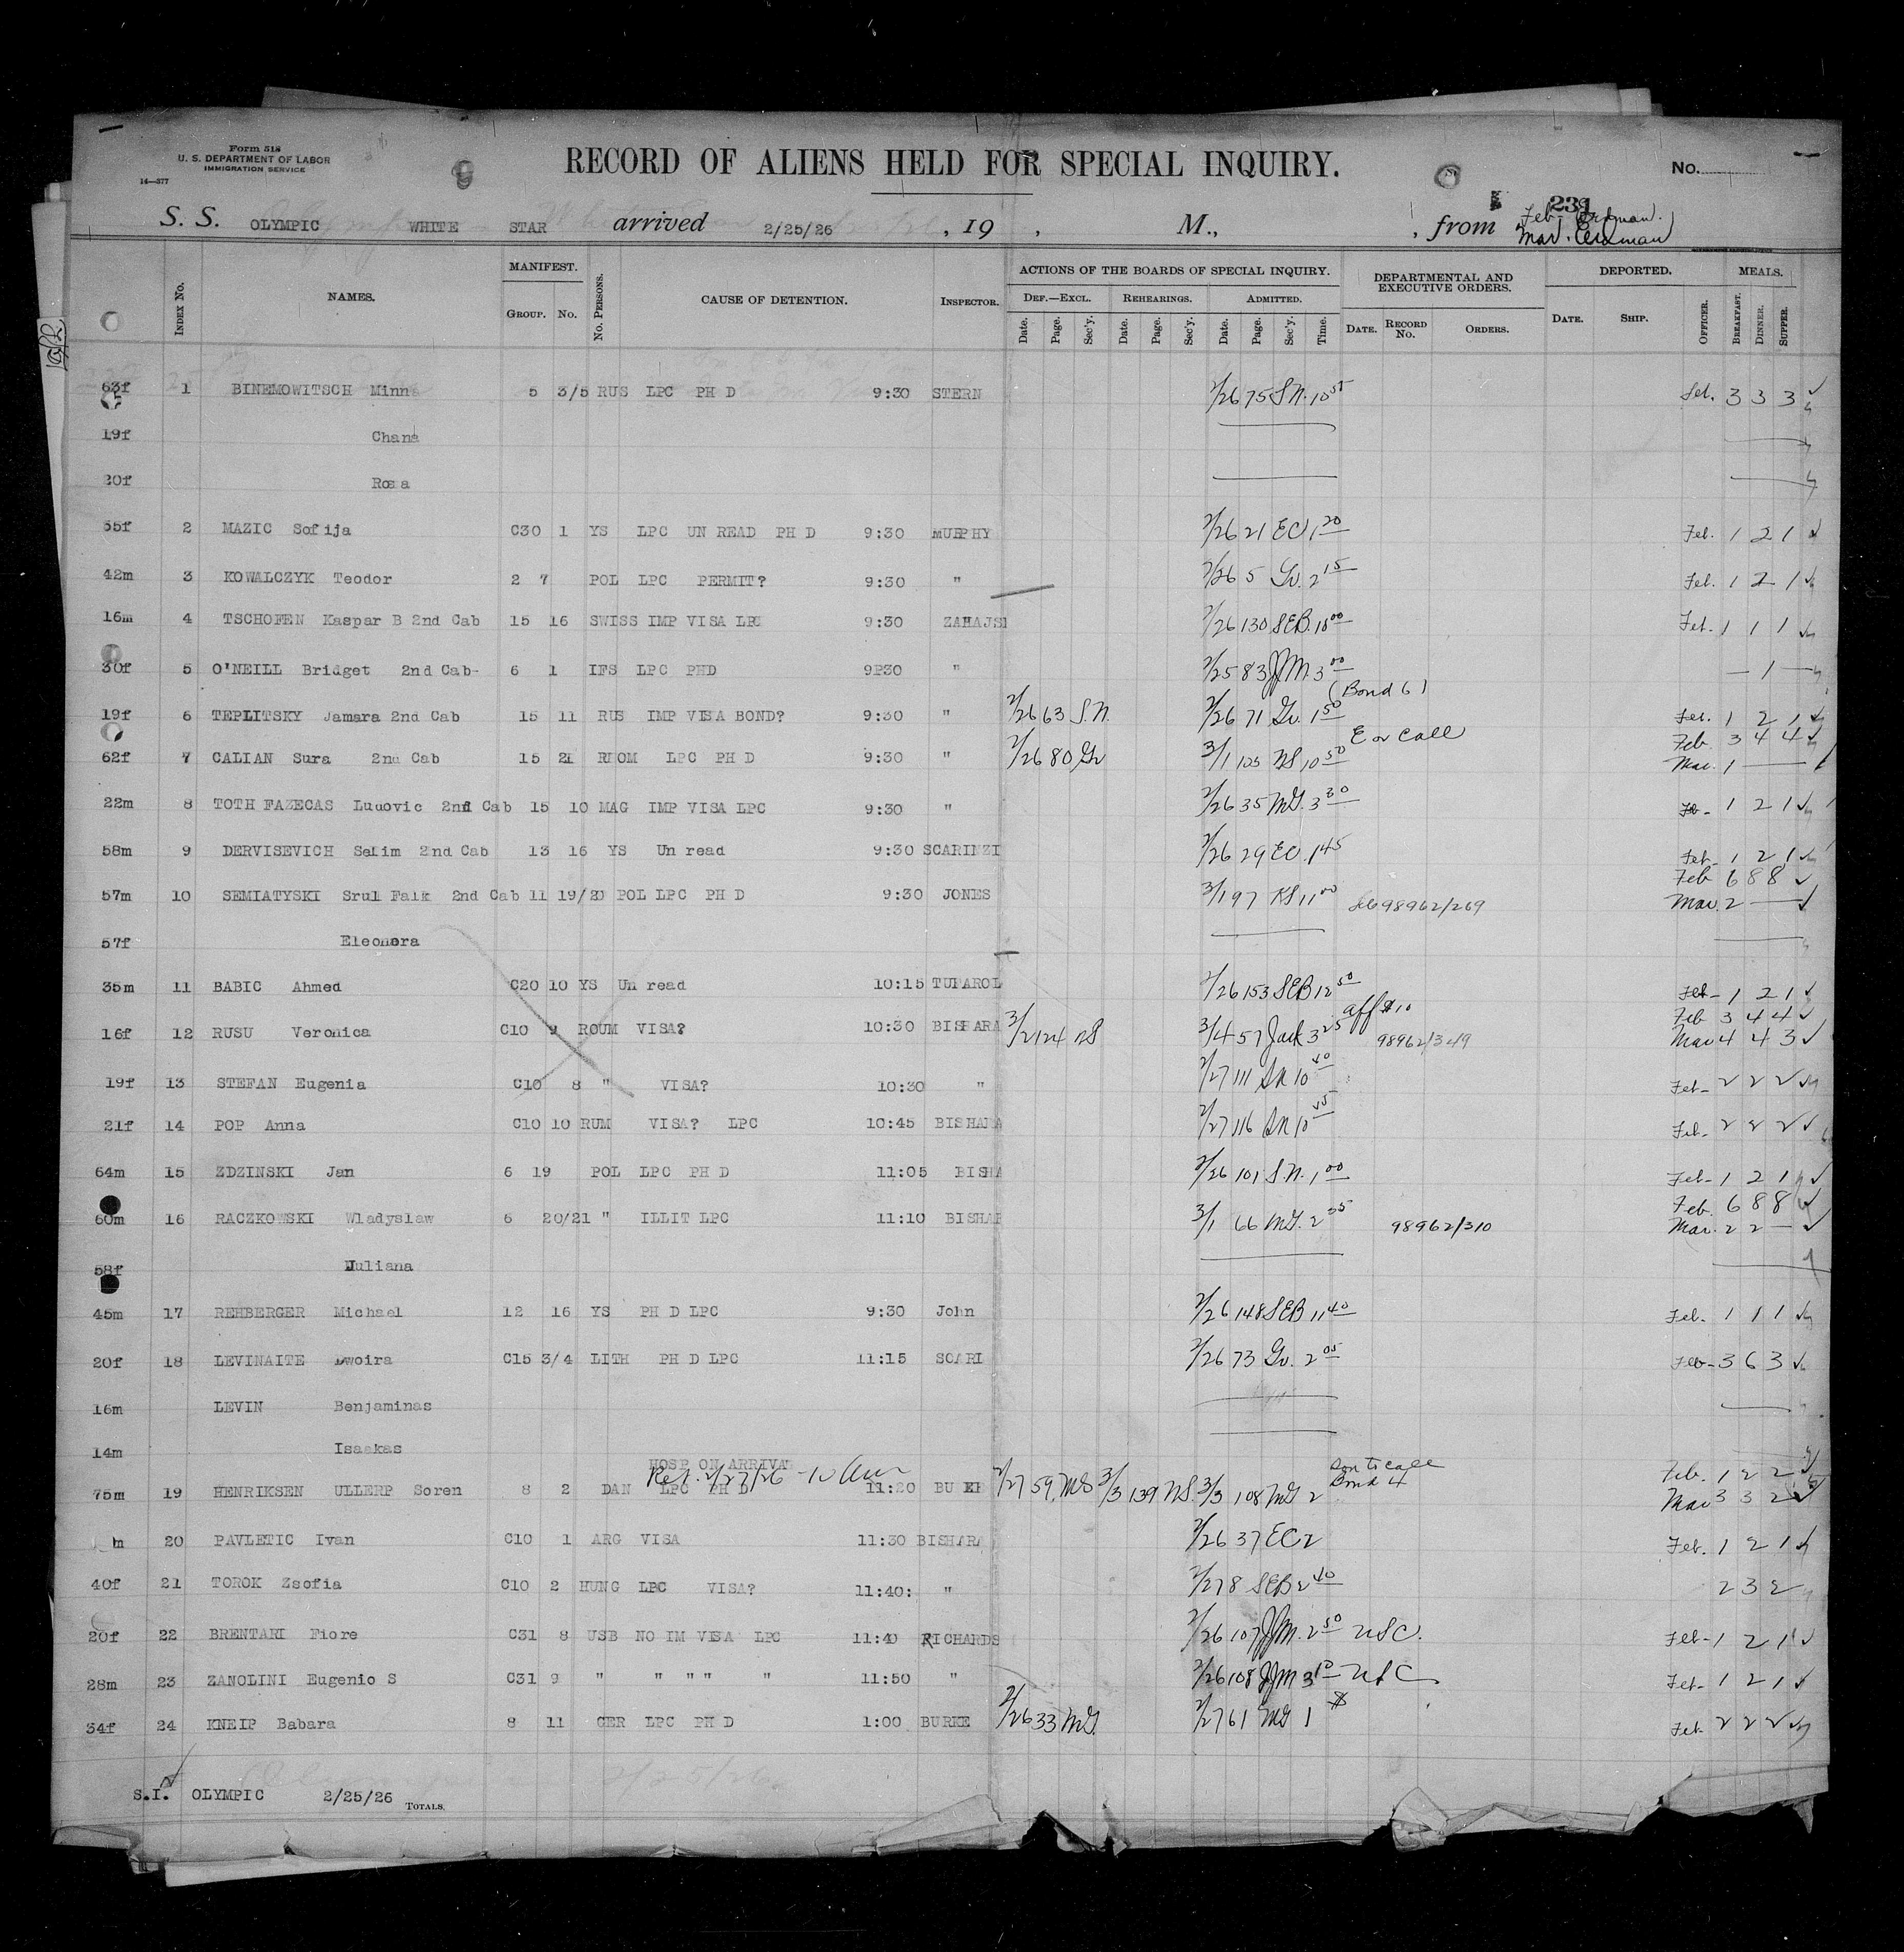 Form 518
U. S. DEPARTMENT OF LABOR
IMMIGRATION SERVICE
14—577
RECORD OF ALIENS HELD FOR SPECIAL INQUIRY.
No.
239
S. S. OLYMPIC WHITE STAR arrived 2/25/26, 19 , M., , from Feb. Erdman.
Mar. Erdman
INDEX No. NAMES. MANIFEST. GROUP. No. No. PERSONS. CAUSE OF DETENTION. INSPECTOR. ACTIONS OF THE BOARDS OF SPECIAL INQUIRY. DEF.—EXCL. Date. Page. Sec'y. REHEARINGS. Date. Page. Sec'y. ADMITTED. Date. Page. Sec'y. Time. DEPARTMENTAL AND EXECUTIVE ORDERS. DATE. RECORD No. ORDERS. DEPORTED. DATE. SHIP. OFFICER. MEALS. BREAKFAST. DINNER. SUPPER.
63f 1 BINEMOWITSCH Minna 5 3/5 RUS LPC PH D 9:30 STERN 2/26 75 S.N. 10 55 Feb. 3 3 3
19f Chana
20f Rosa
55f 2 MAZIC Sofija C30 1 YS LPC UN READ PH D 9:30 MURPHY 2/26 21 EC 1 20 Feb. 1 2 1
42m 3 KOWALCZYK Teodor 2 7 POL LPC PERMIT? 9:30 " 2/26 5 Gv. 2 15 Feb. 1 2 1
16m 4 TSCHOFEN Kaspar B 2nd Cab 15 16 SWISS IMP VISA LPC 9:30 ZAHAJSI 2/26 130 SEB. 10 00 Feb. 1 1 1
30f 5 O'NEILL Bridget 2nd Cab- 6 1 IFS LPC PHD 9:30 " 2/25 83 JJM 3 00 — 1 —
(Bond 6)
19f 6 TEPLITSKY Jamara 2nd Cab 15 11 RUS IMP VISA BOND? 9:30 " 2/26 63 S.N. 2/26 71 Gv. 1 50 Feb. 1 2 1
E or Call Feb 3 4 4
62f 7 CALIAN Sura 2nd Cab 15 21 ROOM LPC PH D 9:30 " 2/26 80 Gv 3/1 125 NS 10 50 Mar. 1 —
22m 8 TOTH FAZECAS Ludovic 2nd Cab 15 10 MAG IMP VISA LPC 9:30 " 2/26 35 MG. 3 30 Feb- 1 2 1
58m 9 DERVISEVICH Selim 2nd Cab 13 16 YS Un read 9:30 SCARINZI 2/26 29 EC. 1 45 Feb- 1 2 1
Feb 6 8 8
57m 10 SEMIATYSKI Srul Falk 2nd Cab 11 19/20 POL LPC PH D 9:30 JONES 3/1 97 NS 11 00 98962/269 Mar. 2 —
57f Eleonora
35m 11 BABIC Ahmed C20 10 YS Un read 10:15 TUPAROL 2/26 153 SEB 12 50 Feb- 1 2 1
aff $10 Feb 3 4 4
16f 12 RUSU Veronica C10 9 ROUM VISA? 10:30 BISHARA 3/2 124 NS 3/4 57 Jack 3 25 98962/349 Mar 4 4 3
19f 13 STEFAN Eugenia C10 8 " VISA? 10:30 " 2/27 111 SN 10 40 Feb- 2 2 2
21f 14 POP Anna C10 10 RUM VISA? LPC 10:45 BISHARA 2/27 116 SN 10 45 Feb- 2 2 2
64m 15 ZDZINSKI Jan 6 19 POL LPC PH D 11:05 BISHA 2/26 101 S.N. 1 00 Feb- 1 2 1
Feb. 6 8 8
60m 16 RACZKOWSKI Wladyslaw 6 20/21 " ILLIT LPC 11:10 BISHAR 3/1 66 MG. 2 35 98962/310 Mar. 2 2 —
58f Juliana
45m 17 REHBERGER Michael 12 16 YS PH D LPC 9:30 John 2/26 148 SEB 11 40 Feb. 1 1 1
20f 18 LEVINAITE Dwoira C15 3/4 LITH PH D LPC 11:15 SCARI 2/26 73 Gv. 2 05 Feb- 3 6 3
16m LEVIN Benjaminas
14m Isaakas
HOSP ON ARRIVAL Ret. 2/27/26 - 10 am Bond 4 Feb. 1 2 2
75m 19 HENRIKSEN ULLERP Soren 8 2 DAN LPC PH D 11:20 BURKE 2/27 59 MS 3/3 139 NS. 3/3 108 MG 2 Mar 3 3 2
m 20 PAVLETIC Ivan C10 1 ARG VISA 11:30 BISHARA 2/26 37 EC 2 Feb. 1 2 1
40f 21 TOROK Zsofia C10 2 HUNG LPC VISA? 11:40: " 2/27 8 SEB 2 40 2 3 2
20f 22 BRENTARI Fiore C31 8 USB NO IM VISA LPC 11:40 RICHARDS 2/26 107 JJM. 2 50 USC. Feb- 1 2 1
28m 23 ZANOLINI Eugenio S C31 9 " " " " " 11:50 " 2/26 108 JJM 3 10 USC Feb- 1 2 1
34f 24 KNEIP Babara 8 11 GER LPC PH D 1:00 BURKE 2/26 33 MG. 2/27 61 MG 1 $ Feb 2 2 2
S.I. OLYMPIC 2/25/26 TOTALS.